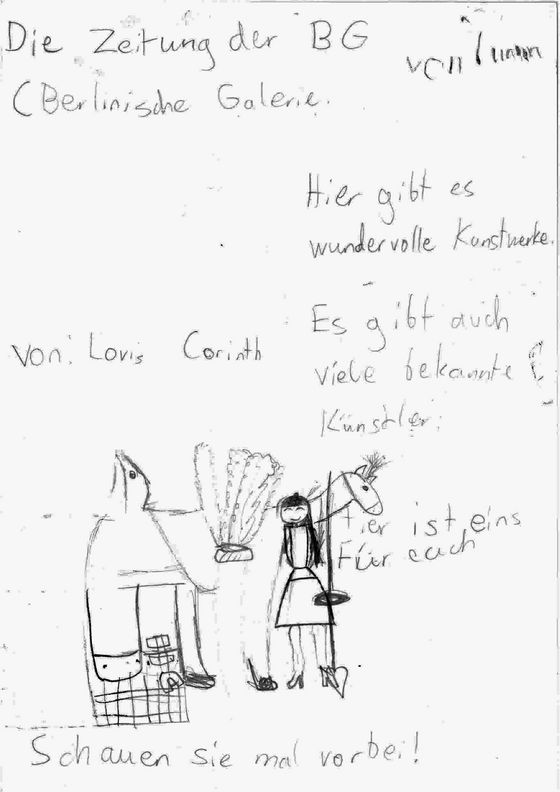 Die Zeitung der BG
von
(Berlinische Galerie.
Hier gibt es
wundervolle Kunstwerke.
Es gibt auch
viele bekannte
Künstler.
von: Lovis Corinth
Hier ist eins
Für euch
Schauen sie mal vorbei!